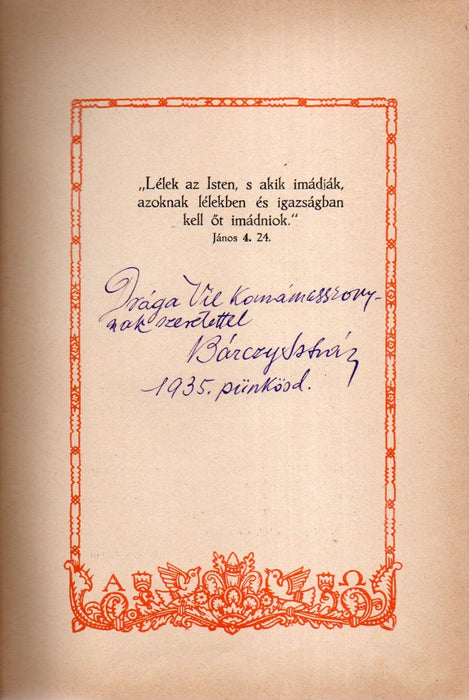 „Lélek az Isten, s akik imádják,
azoknak lélekben és igazságban
kell őt imádniok.“
János 4. 24.
Drága
nak szeretettel
Bárczy István
1935. pünkösd.
A Ω